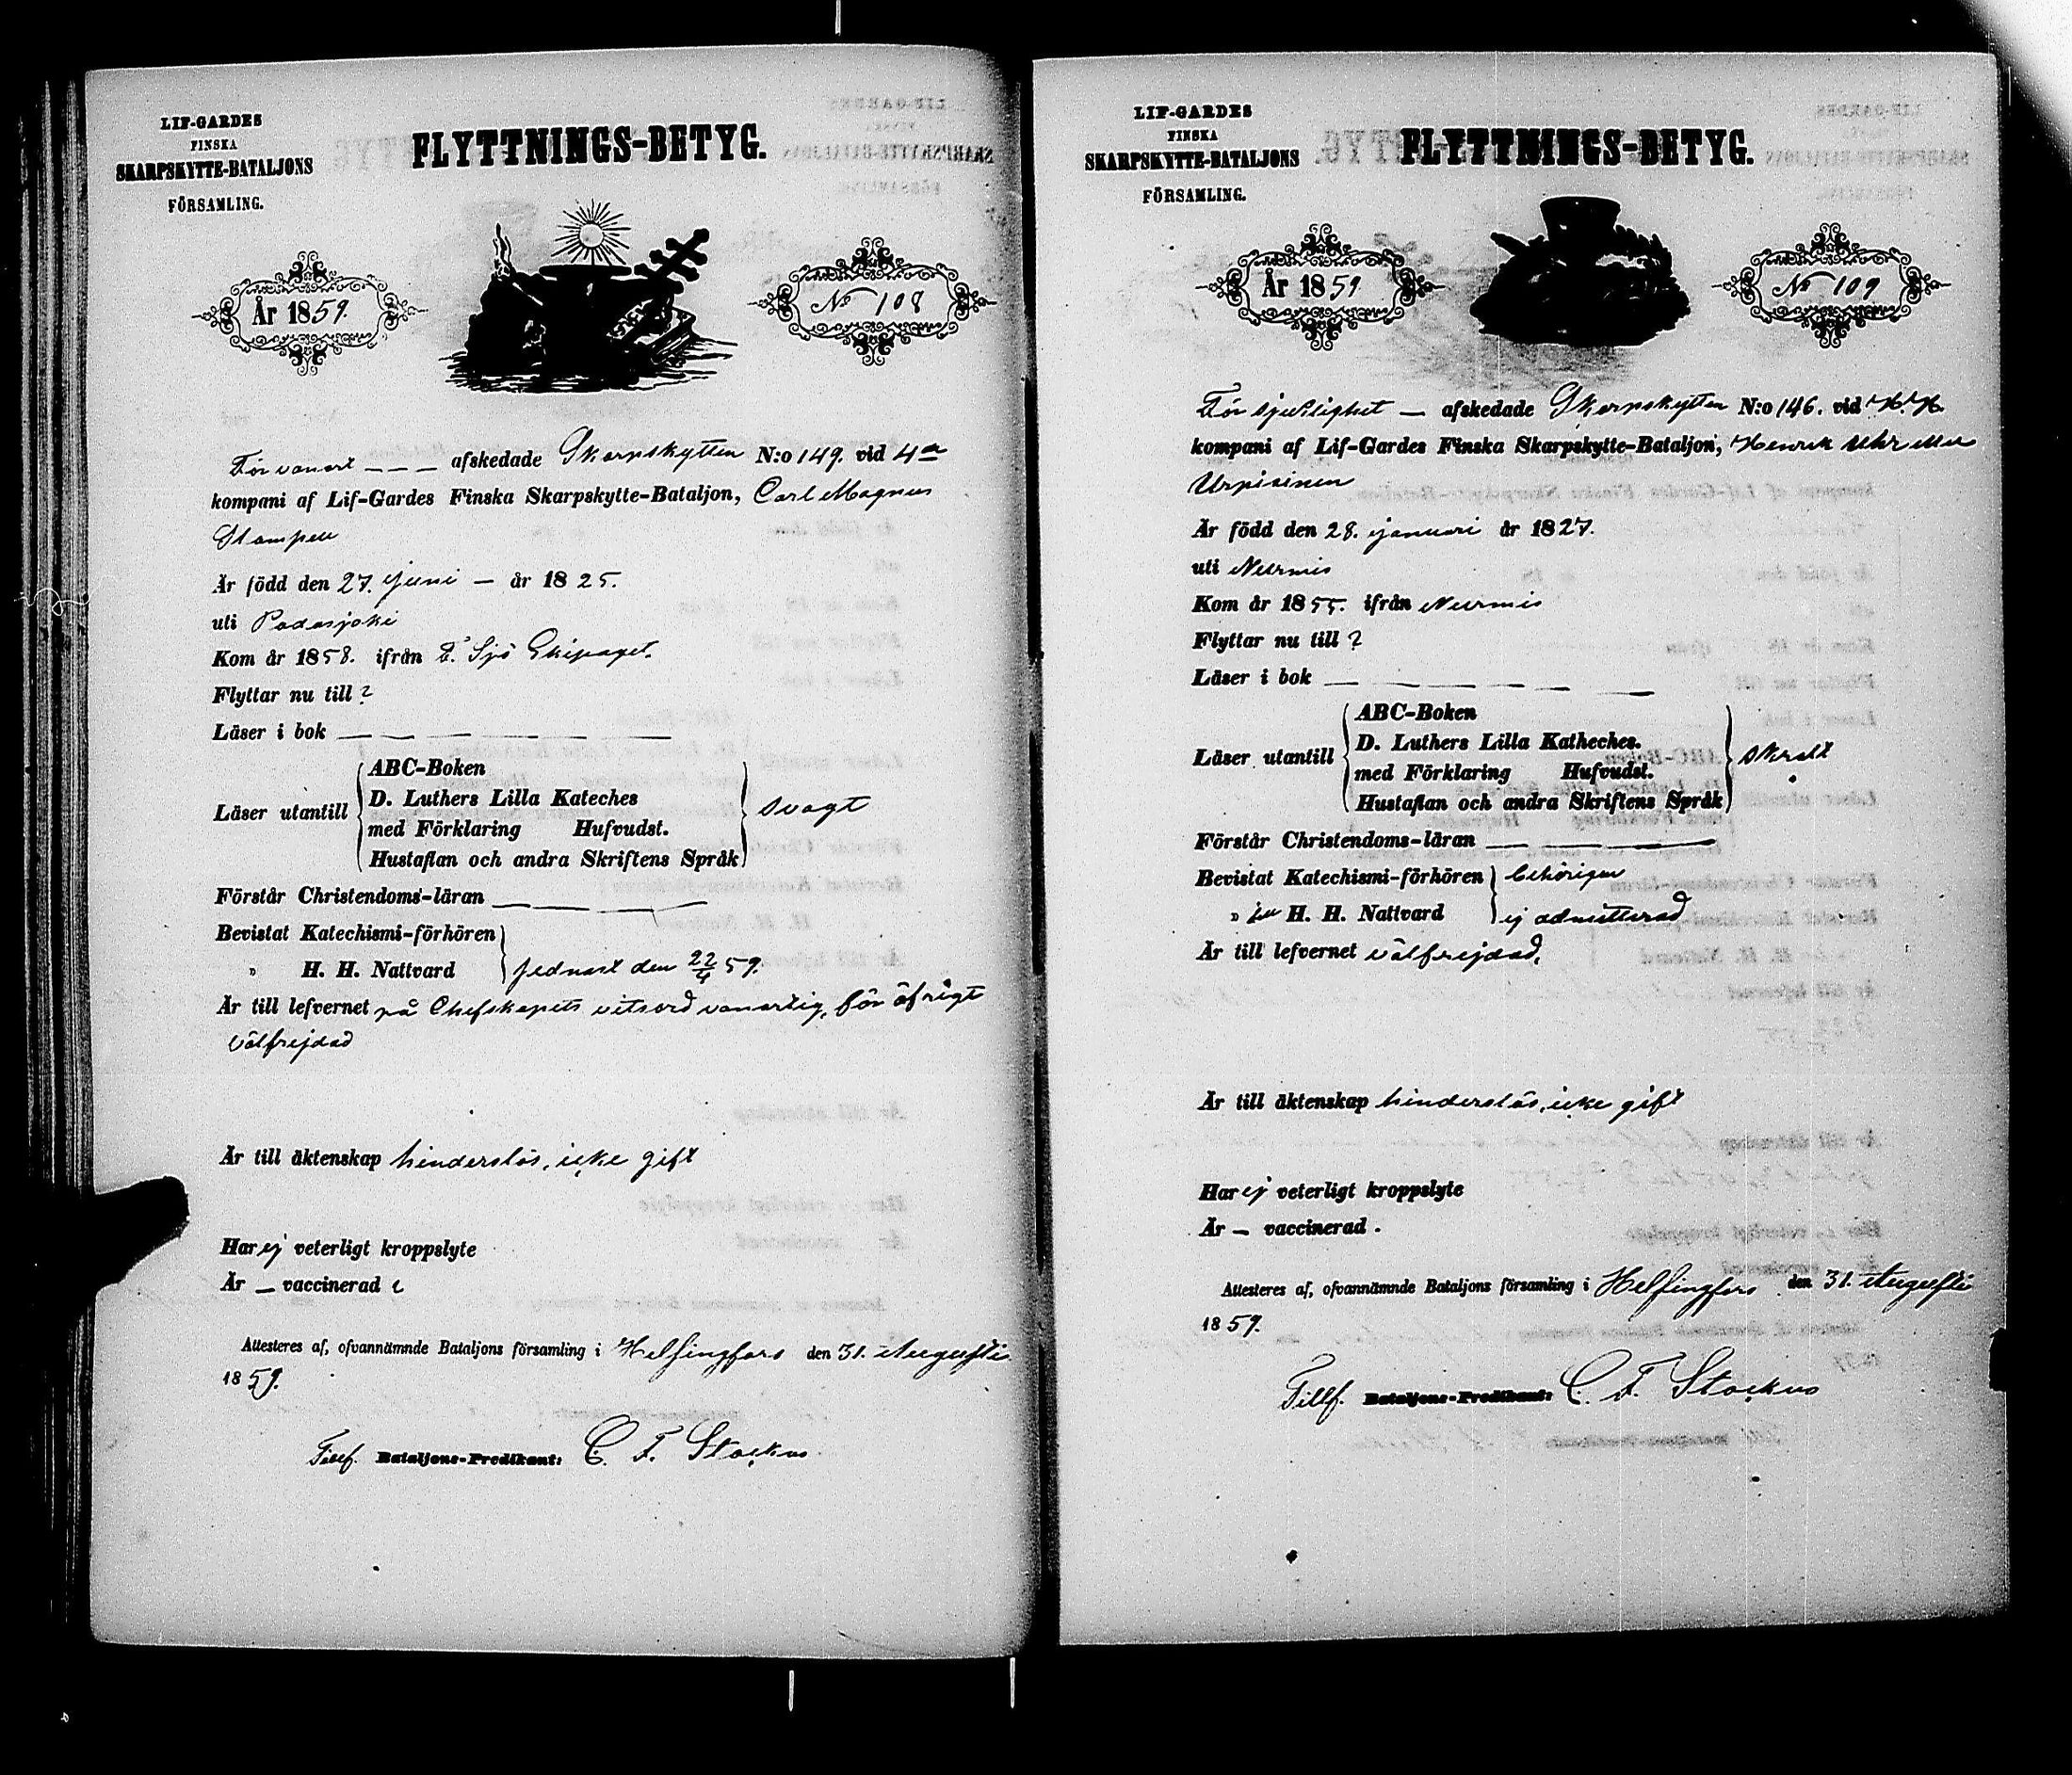 LIF-GARDES
FINSKA
SKARPSKYTTE-BATALJONS
FÖRSAMLING.
FLYTTNINGS-BETYG.
År 1859.
No 108
För vanart – – – afskedade Skarpskytten N:o 149. vid 4de
kompani af Lif-Gardes Finska Skarpskytte-Bataljon, Carl Magnus
Stampeu
Är född den 27. Juni – år 1825.
uti Padasjoki
Kom år 1858. ifrån F. Sjö Ekipaget.
Flyttar nu till ?
Läser i bok — — — — —
Läser utantill
ABC-Boken
D. Luthers Lilla Kateches
med Förklaring Hufvudst.
Hustaflan och andra Skriftens Språk
svagt
Förstår Christendoms-läran — — — —
Bevistat Katechismi-förhören
" H. H. Nattvard
sednast den 22/4 59.
Är till lefvernet på Chefskapets vitsord vanartig, för öfrigt
välfrejdad
Är till äktenskap hinderslös, icke gift
Har ej veterligt kroppslyte
Är – vaccinerad
Attesteres af, ofvannämnde Bataljons församling i Helsingfors den 31. Augusti
1859.
Tillf. Bataljons-Predikant: C. F. Stockus
LIF-GARDES
FINSKA
SKARPSKYTTE-BATALJONS
FÖRSAMLING.
FLYTTNINGS-BETYG.
År 1859
No 109
För sjuklighet — afskedade Skarpskytten N:o 146. vid H. K. H.
kompani af Lif-Gardes Finska Skarpskytte-Bataljon, Henrik Uhr eller
Urpiainen
Är född den 28. januari år 1827.
uti Nurmis
Kom år 1855. ifrån Nurmis
Flyttar nu till ?
Läser i bok — — — — — —
Läser utantill
ABC-Boken
D. Luthers Lilla Katheches.
med Förklaring Hufvudst.
Hustaflan och andra Skriftens Språk
skralt
Förstår Christendoms-läran — — —
Bevistat Katechismi-förhören behörigen
" till H. H. Nattvard ej admitterad
Är till lefvernet välfrejdad,
Är till äktenskap hinderslös, icke gift
Har ej veterligt kroppslyte
Är – vaccinerad.
Attesteres af, ofvannämnde Bataljons församling i Helsingfors den 31. Augusti
1859.
Tillf. Bataljons-Predikant: C. F. Stockus